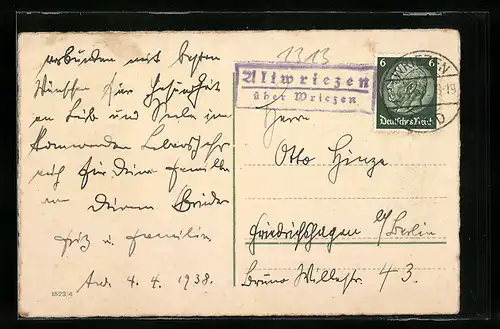 verbunden mit besten
Wünschen für Gesundheit
an Leib und Seele im
kommenden Lebensjahr
auch für Deine Familie
Deinem Bruder
Fritz u. Familie
4. 4. 1938.
1522/4
1313
Altwriezen
über Wriezen
6 6
Deutsches Reich
WRIEZEN
Herrn
Otto Hinze
Friedrichshagen b/Berlin
Bruno Willestr 43.